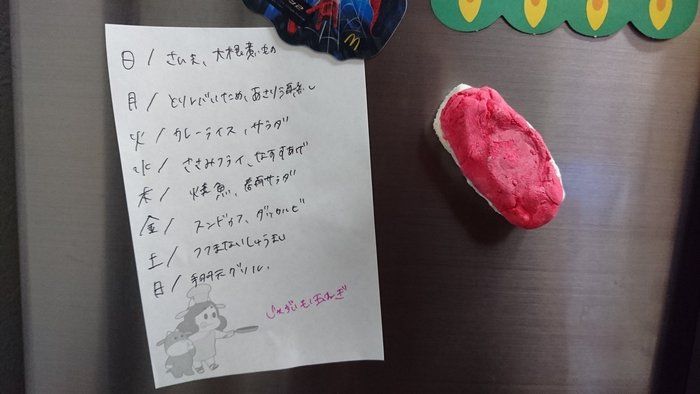 日 / さんま、大根煮もの
月 / とりレバいため、あさり酒蒸し
火 / カレーライス、サラダ
水 / ささみフライ、なすあげ
木 / 焼魚、春雨サラダ
金 / スンドゥブ、ダッカルビ
土 / つつまないしゅうまい
日 / グリル、
じゃがいも 玉ねぎ